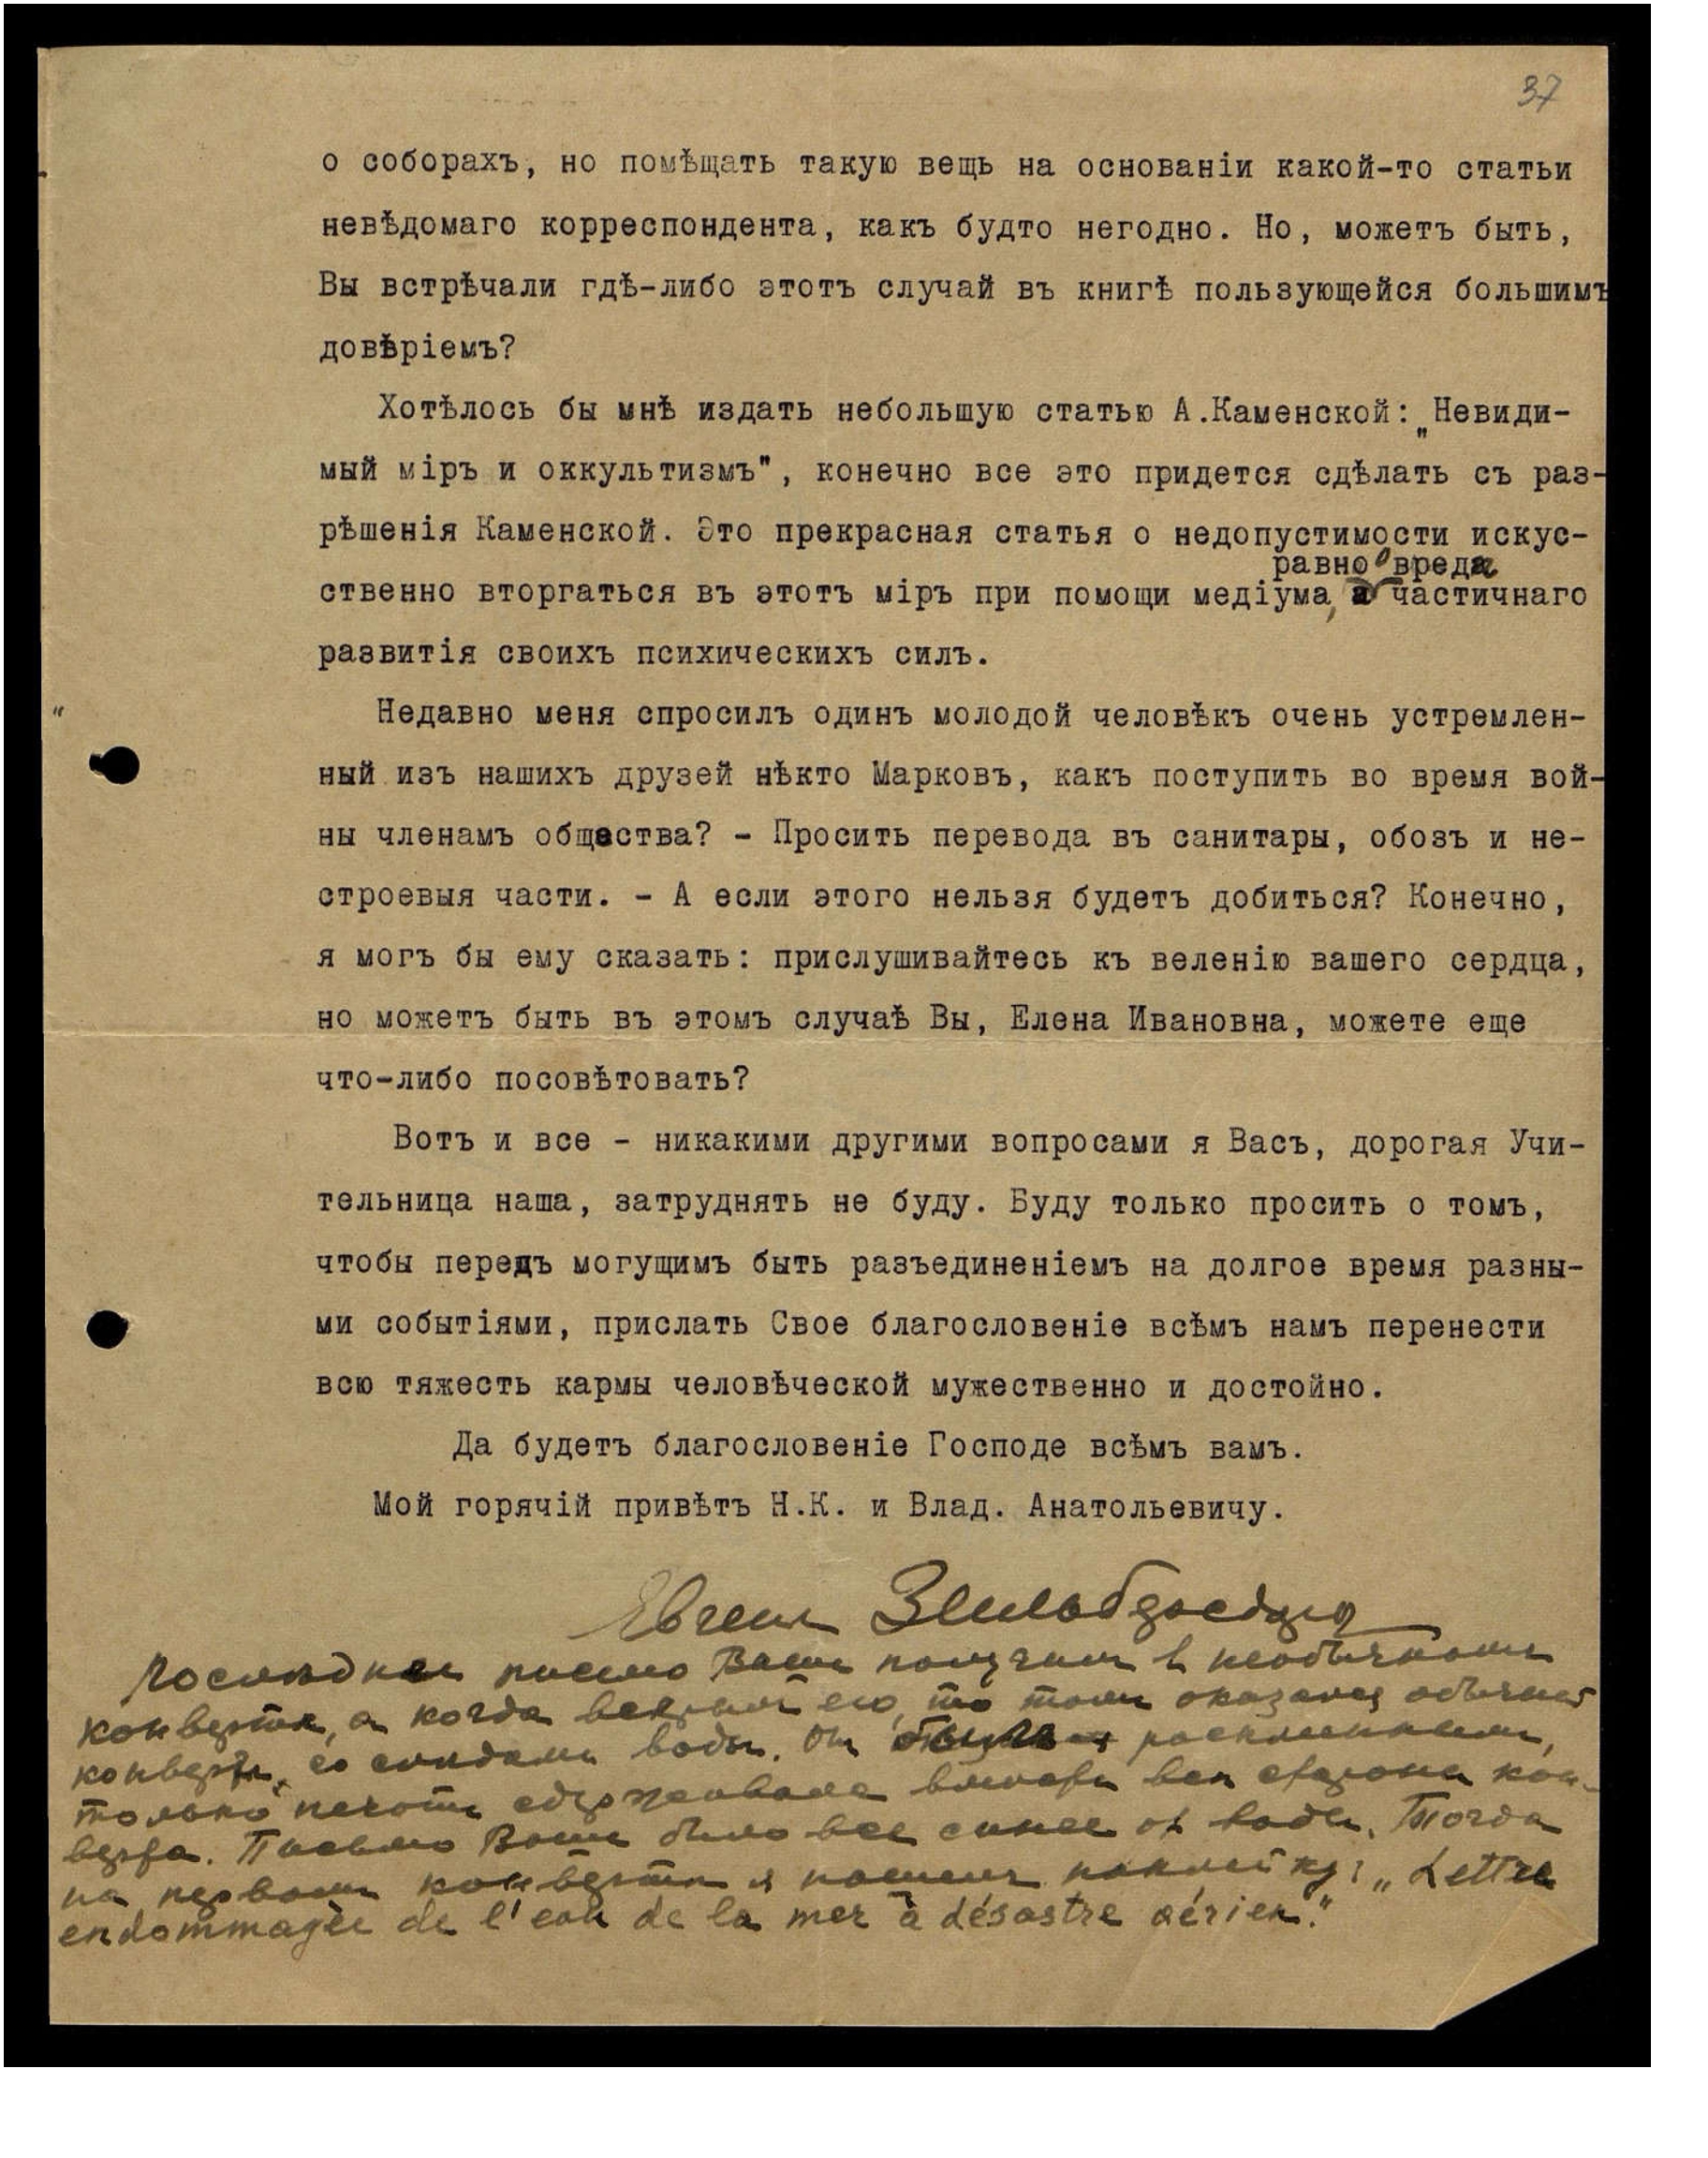 37
о соборахъ, но помѣщать такую вещь на основаніи какой-то статьи
невѣдомаго корреспондента, какъ будто негодно. Но, можетъ быть,
Вы встрѣчали гдѣ-либо этотъ случай въ книгѣ пользующейся большимъ
довѣріемъ?
Хотѣлось бы мнѣ издать небольшую статью А.Каменской: „Невиди-
мый міръ и оккультизмъ", конечно все это придется сдѣлать съ раз-
рѣшенія Каменской. Это прекрасная статья о недопустимости искус-
равно о вреда
ственно вторгаться въ этотъ міръ при помощи медіума, частичнаго
развитія своихъ психическихъ силъ.
Недавно меня спросилъ одинъ молодой человѣкъ очень устремлен-
ный изъ нашихъ друзей нѣкто Марковъ, какъ поступить во время вой-
ны членамъ общества? - Просить перевода въ санитары, обозъ и не-
строевыя части. - А если этого нельзя будетъ добиться? Конечно,
я могъ бы ему сказать: прислушивайтесь къ веленію вашего сердца,
но можетъ быть въ этомъ случаѣ Вы, Елена Ивановна, можете еще
что-либо посовѣтовать?
Вотъ и все - никакими другими вопросами я Васъ, дорогая Учи-
тельница наша, затруднять не буду. Буду только просить о томъ,
чтобы передъ могущимъ быть разъединеніемъ на долгое время разны-
ми событіями, прислать Свое благословеніе всѣмъ намъ перенести
всю тяжесть кармы человѣческой мужественно и достойно.
Да будетъ благословеніе Господе всѣмъ вамъ.
Мой горячій привѣтъ Н.К. и Влад. Анатольевичу.
Евгеній Зильберсдорф
Последнее письмо Ваше получил в необычном
конверте, а когда вскрыл его, то там оказался обычный
конверт, со следами воды. Он был расклеенным,
только печать сдерживала вместе все стороны кон-
верта. Письмо Ваше было все синее от воды. Тогда
на первом конверте я нашел наклейку: „Lettre
endommagée de l'eau de la mer à désastre aérien."